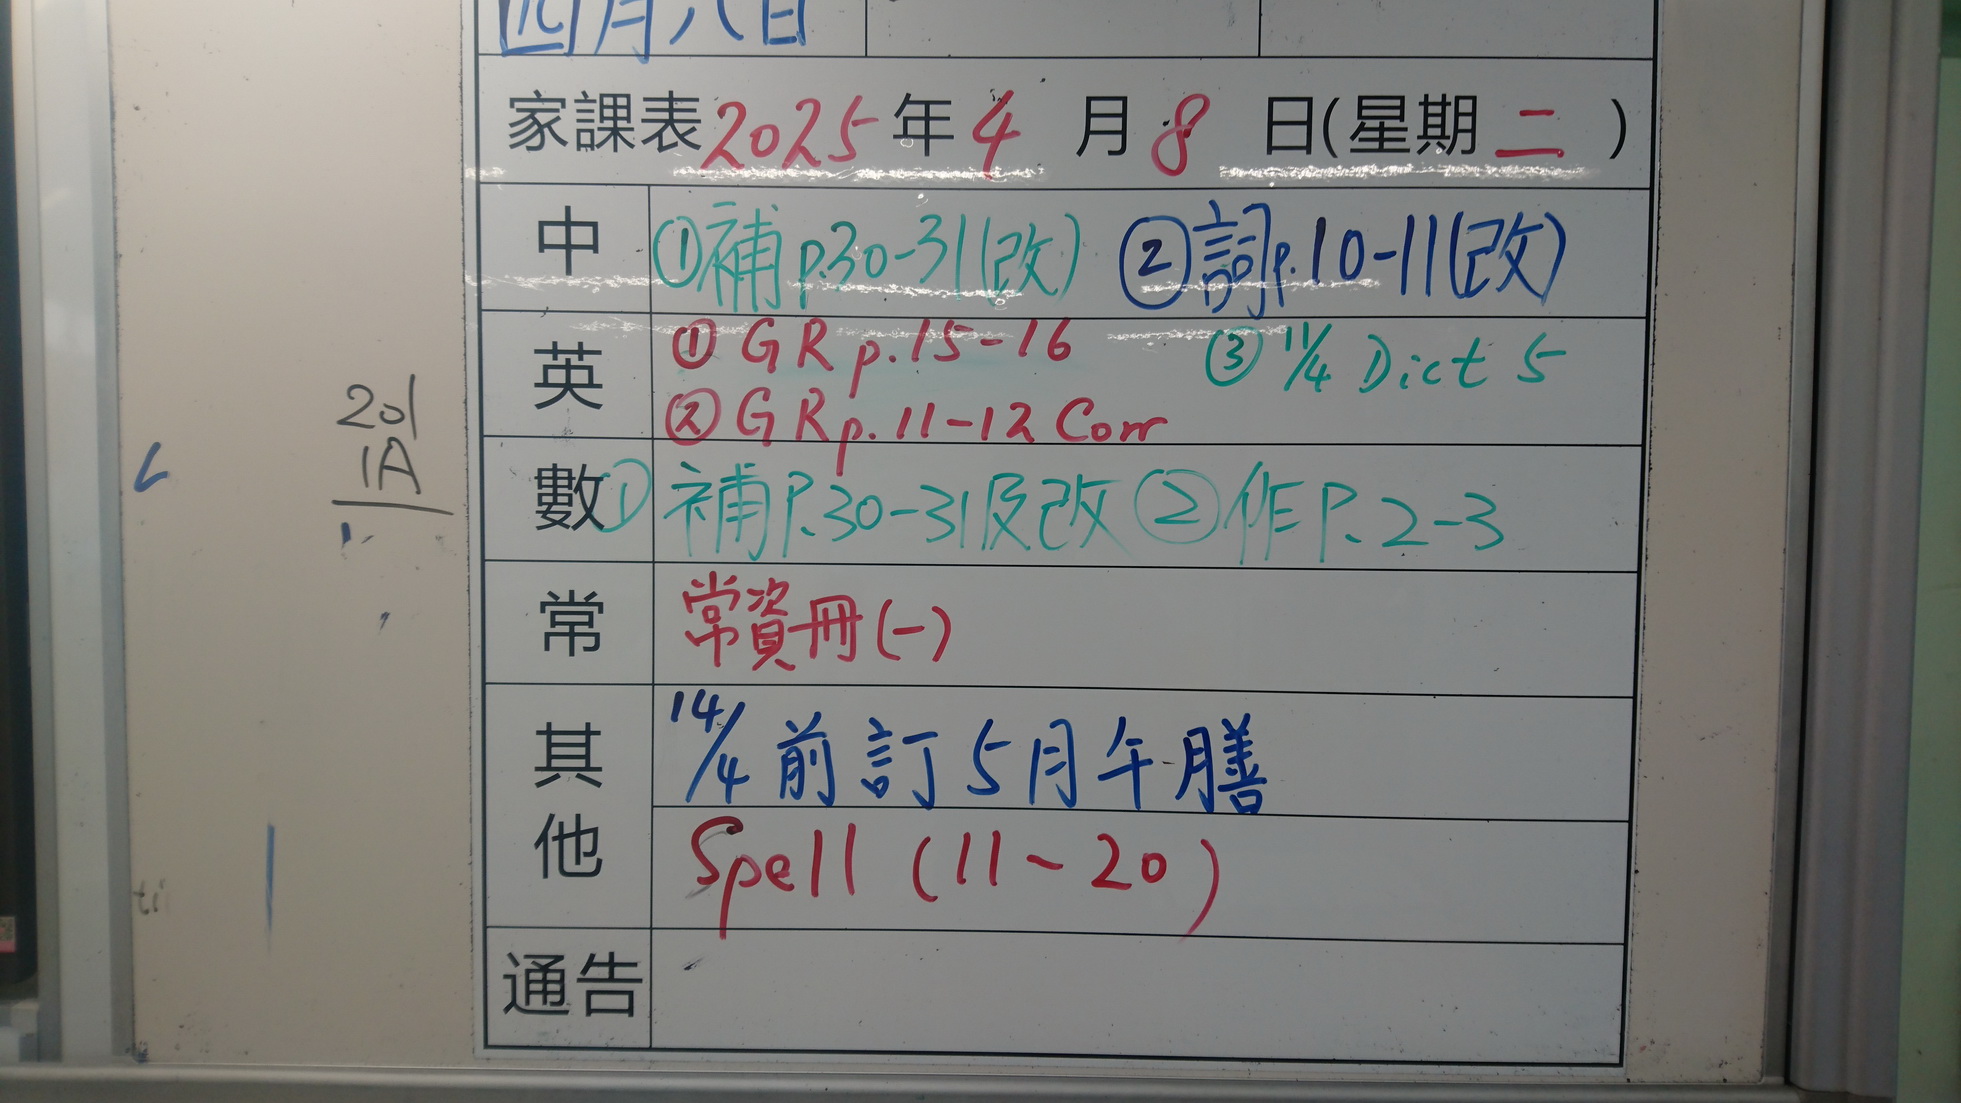 四月八日
家課表2025年4月8日(星期二)
中 ①補p.30-31(改) ②詞p.10-11(改)
英 ①GR p.15-16 ③11/4 Dict 5
②GR p.11-12 Corr
數 ①補P.30-31及改 ②作P.2-3
常 常資冊(一)
其他 14/4前訂5月午膳
Spell (11~20)
通告
201
1A